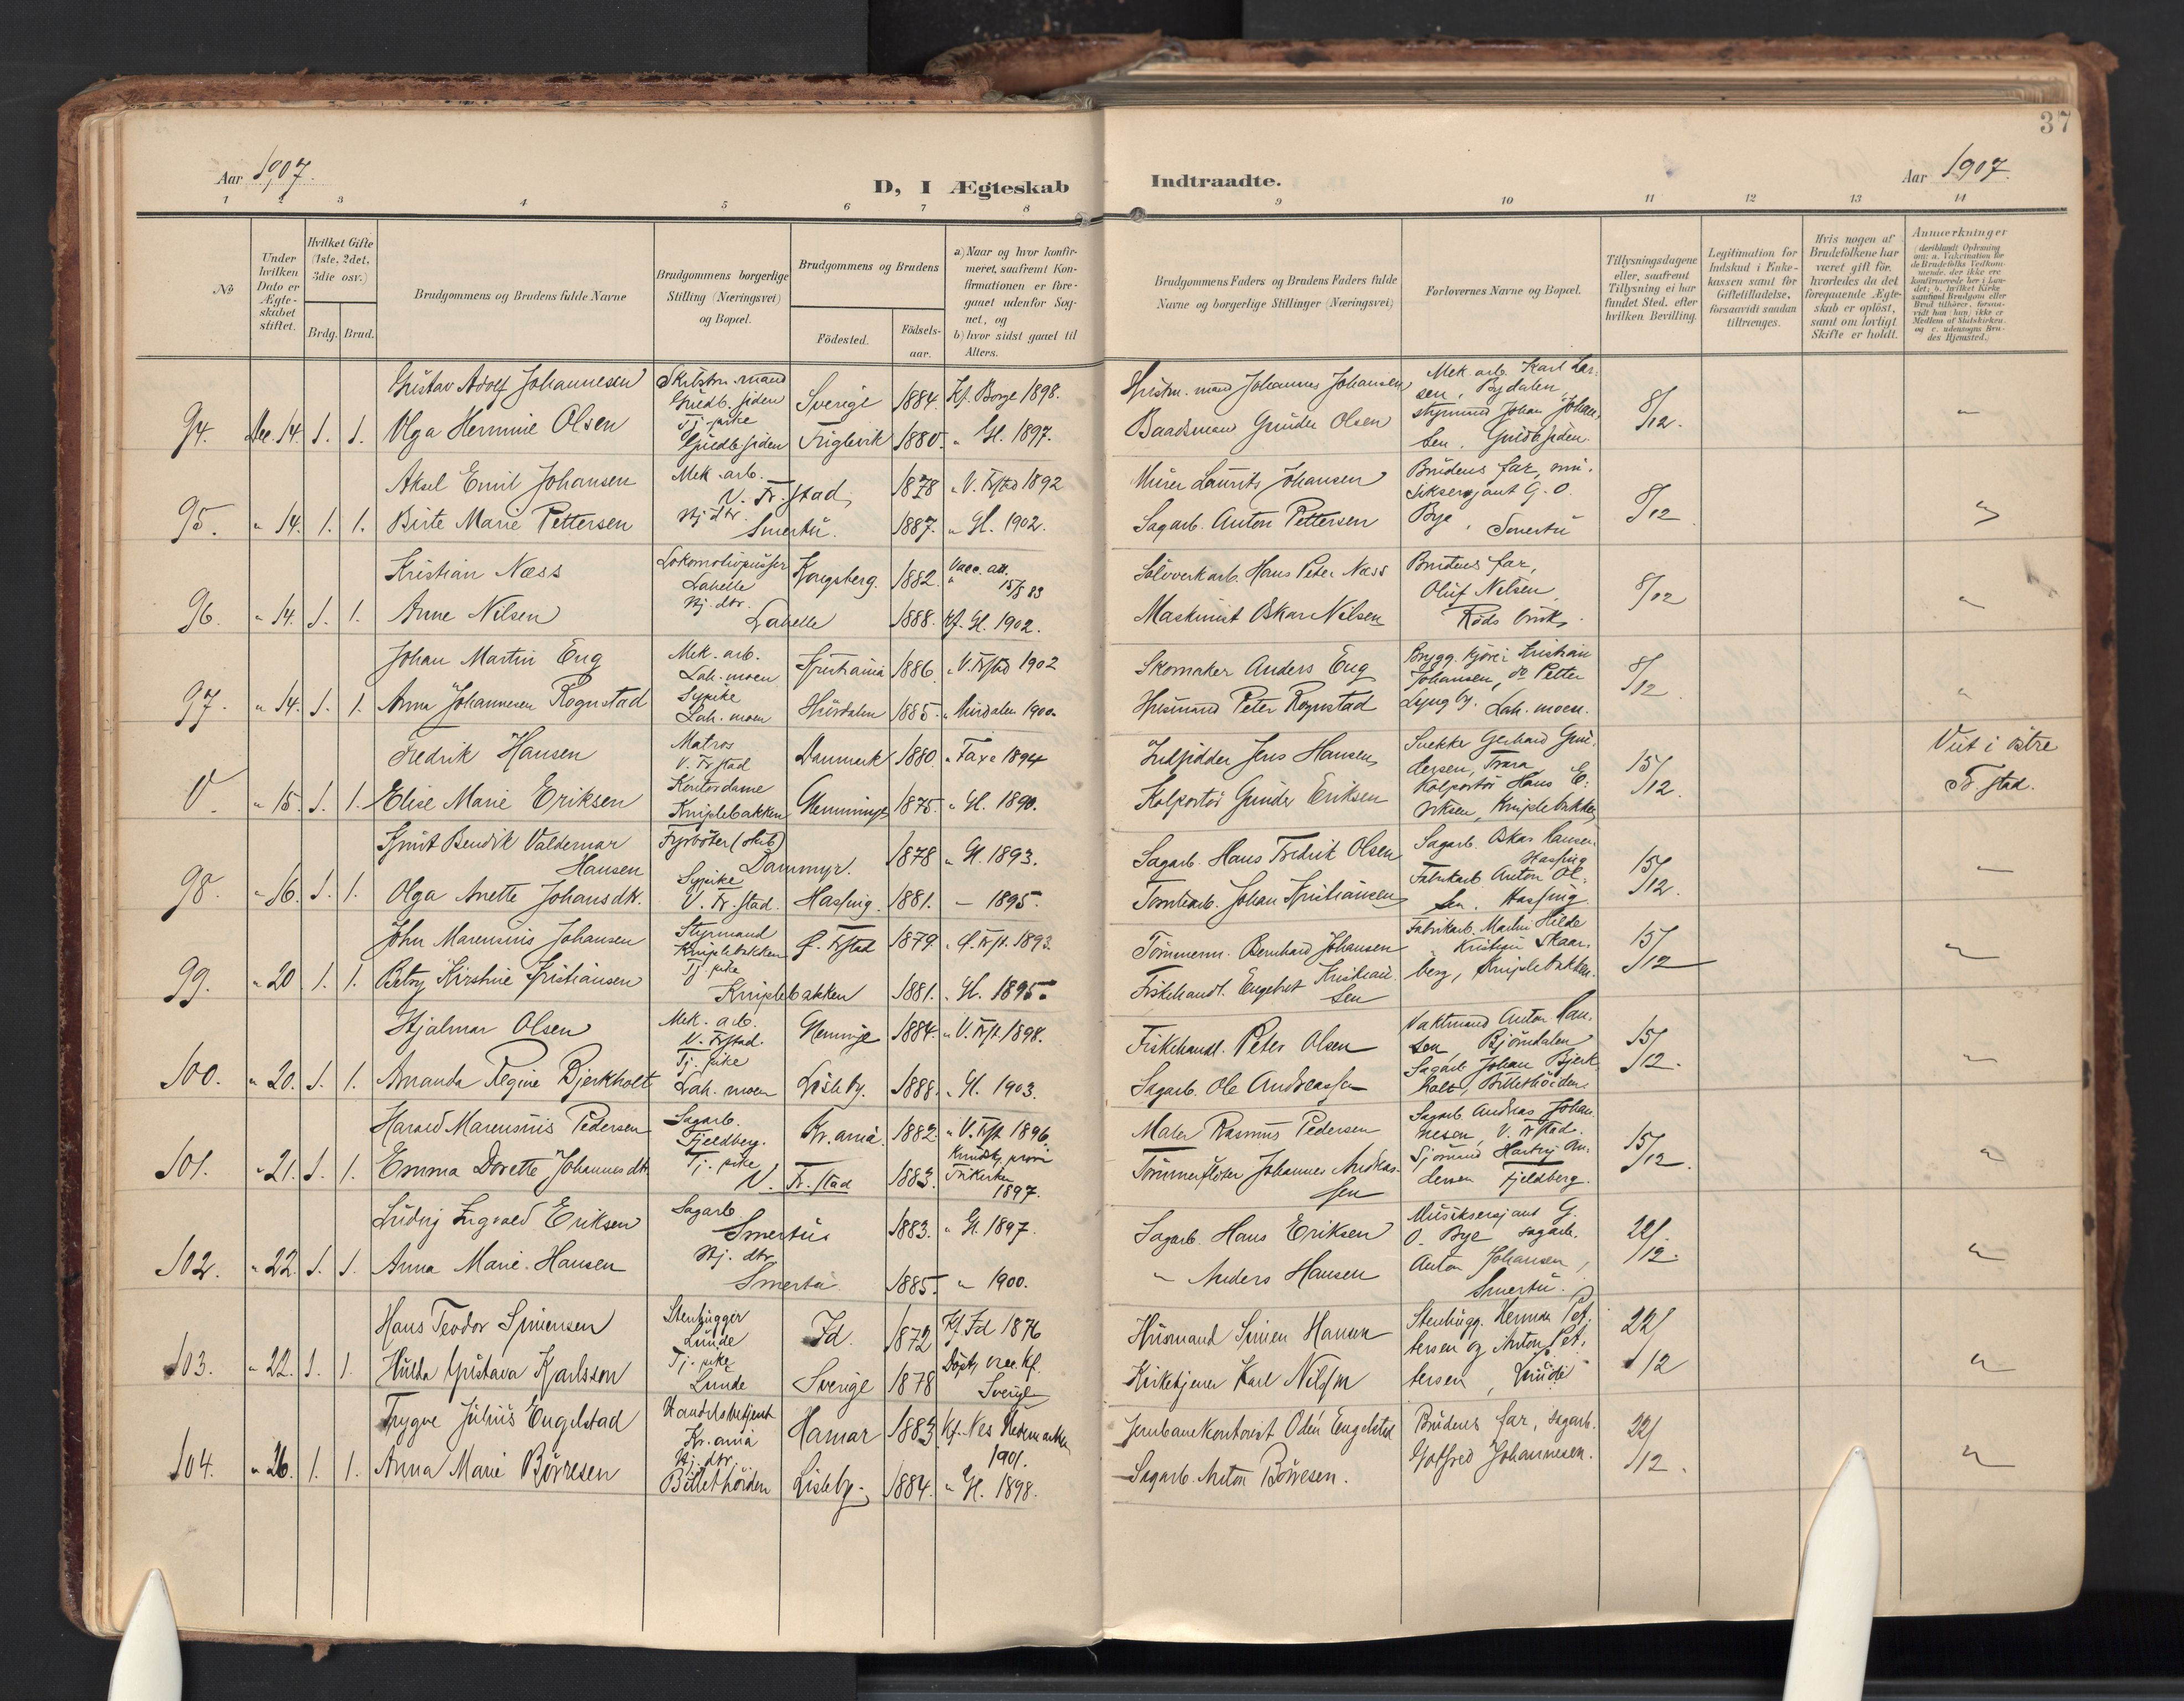 37
Aar 1907.
D, I Ægteskab Indtraadte.
Aar 1907.
1 2 3 4 5 6 7 8 9 10 11 12 13 14
No
Under hvilken Dato er Ægteskabet stiftet.
Hvilket Gifte (1ste, 2det, 3die osv.)
Brdg. Brud.
Brudgommens og Brudens fulde Navne
Brudgommens borgerlige Stilling (Næringsvei) og Bopæl.
Brudgommens og Brudens
Födested.
Födselsaar.
a) Naar og hvor konfirmeret, saafremt Konfirmationen er foregaaet udenfor Sognet, og
b) hvor sidst gaaet til Alters.
Brudgommens Faders og Brudens Faders fulde Navne og borgerlige Stillinger (Næringsvei)
Forlovernes Navne og Bopæl.
Tillysningsdagene eller, saafremt Tillysning ei har fundet Sted, efter hvilken Bevilling.
Legitimation for Indskud i Enkekassen samt for Giftetilladelse, forsaavidt saadan tiltrenges.
Hvis nogen af Brudefolkene har været gift för, hvorledes da det foregaaende Ægteskab er oplöst, samt om lovligt Skifte er holdt.
Anmærkninger
94. Dec. 14. 1. 1.
Gustav Adolf Johannesen Sverige 1884. Kf. Borge 1898. Johannes Johansen
Mek. arb. Karl Larsen, Bydalen
Olga Hermine Olsen Tj. pike 1880. " Gl. 1897. Baadsman Gunder Olsen
styrmand Johan Johansen. 8/12.
95. " 14. 1. 1.
Aksel Emil Johansen Mek. arb. V. Fr.stad 1878 " V. Frstad 1892 Murer Laurits Johansen
Brudens far, musiksersjant G. O. Bye, Smertu 8/12
Birte Marie Pettersen Hj. dtr. Smertu. 1887. " Gl. 1902. Sagarb. Anton Pettersen
96. " 14. 1. 1.
Kristian Næss Lokomotivpusser Lahelle Kongsberg. 1882. Vacc. att. 15/8 83 Sölvverkarb. Hans Peter Næss
Brudens far, Oluf Nilsen, Röds bruk. 8/12
Anne Nilsen Hj. dtr. Lahelle 1888. Kf. Gl. 1902. Maskinist Oskar Nilsen
97. " 14. 1. 1.
Johan Martin Eng Mek. arb. Lah. moen Kristiania 1886. " V. Frstad 1902 Skomaker Anders Eng
Brygg. kjörer Kristian Johansen, do Petter Lyngby. Lah. moen. 8/12.
Anna Johannesen Rognstad Sypike Lah. moen Hurdalen 1885. " Hurdalen 1900. Husmand Peter Rognstad
V. " 15. 1. 1.
Fredrik Hansen Matros V. Frstad Danmark 1880. " Faxe 1894 Indsidder Jens Hansen
Snekker Gerhard Gundersen, Trara
Viet i östre Fr.stad.
Elise Marie Eriksen Kontordame Kniplebakken 1875. " Gl. 1890. Kolportör Gunder Eriksen
Kolportör Hans Eriksen, Kniplebakken 15/12.
98. " 16. 1. 1.
Knut Bendik Valdemar Hansen Fyrböter (skib) Dammyr. 1878 " Gl. 1893. Sagarb. Hans Fredrik Olsen
Sagarb. Oskar Hansen Hassing 15/12.
Olga Anette Johansdtr. Sypike V. Fr.stad. Hassing. 1881. — 1895. Tomtearb. Johan Kristiansen
Fabrikarb. Anton Olsen. Hassing
99. " 20 1. 1.
John Marensius Johansen Styrmand Kniplebakken Ö. Frstad 1879. " Ö. Frst. 1893. Tömmerm. Bernhard Johansen
Fabrikarb. Martin Hilde " Kristian Skaarberg, Kniplebakken. 15/12
Betsy Kirstine Kristiansen Tj. pike Kniplebakken 1881. " Gl. 1895. Fiskehandl. Engebret Kristiansen
100. " 20. 1. 1.
Hjalmar Olsen Mek. arb. V. Frstad. 1884. " V. Frst. 1898. Fiskehandl. Peter Olsen
Vaktmand Anton Hansen, Björndalen 15/12.
Amanda Regine Bjerkholt Tj. pike Lah. moen Lisleby. 1888. " Gl. 1903. Sagarb. Ole Andreassen
Sagarb. Johan Bjerkholt, Billethöiden.
101. " 21. 1. 1.
Harald Marensius Pedersen Sagarb. Fjeldberg. Kr.ania. 1882. " V. Frst. 1896. Maler Rasmus Pedersen
Sagarb. Andreas Johannesen, V. Frstad. 15/12.
Emma Dorette Johannesdtr. Tj. pike V. Fr.stad 1883. Frikirken 1897. Tömmerflöter Johannes Andreassen
Sjömand Hartvig Andersen Fjeldberg.
102. " 22. 1. 1.
Ludvig Ingvald Eriksen Sagarb. Smertu 1883. " Gl. 1897. Sagarb. Hans Eriksen
Musiksersjant G. O. Bye sagarb. Anton Johansen, Smertu. 22/12.
Anna Marie Hansen Hj. dtr. Smertu 1885. " 1900. " Anders Hansen
103. " 22. 1. 1.
Hans Teodor Simensen Stenhugger Lunde Id. 1872 Kf. Id 1876 Husmand Simen Hansen
Stenhugg. Herman Pettersen og Anton Pettersen, Lunde 22/12
Hulda Gustava Karlsson Tj. pike Lunde Sverige 1878 Kf. Sverige Kirketjener Karl Nilsson
104. " 26. 1. 1.
Trygve Julius Engelstad Handelsbetjent Kr.ania Hamar 1883 Kf. Nes Hedemarken 1901. Jernbanekontorist Oden Engelstad
Brudens far, sagarb. Gotfred Johannesen. 22/12.
Anna Marie Börresen Hj. dtr. Billethöiden Lisleby. 1884. " Gl. 1898. Sagarb. Anton Börresen.